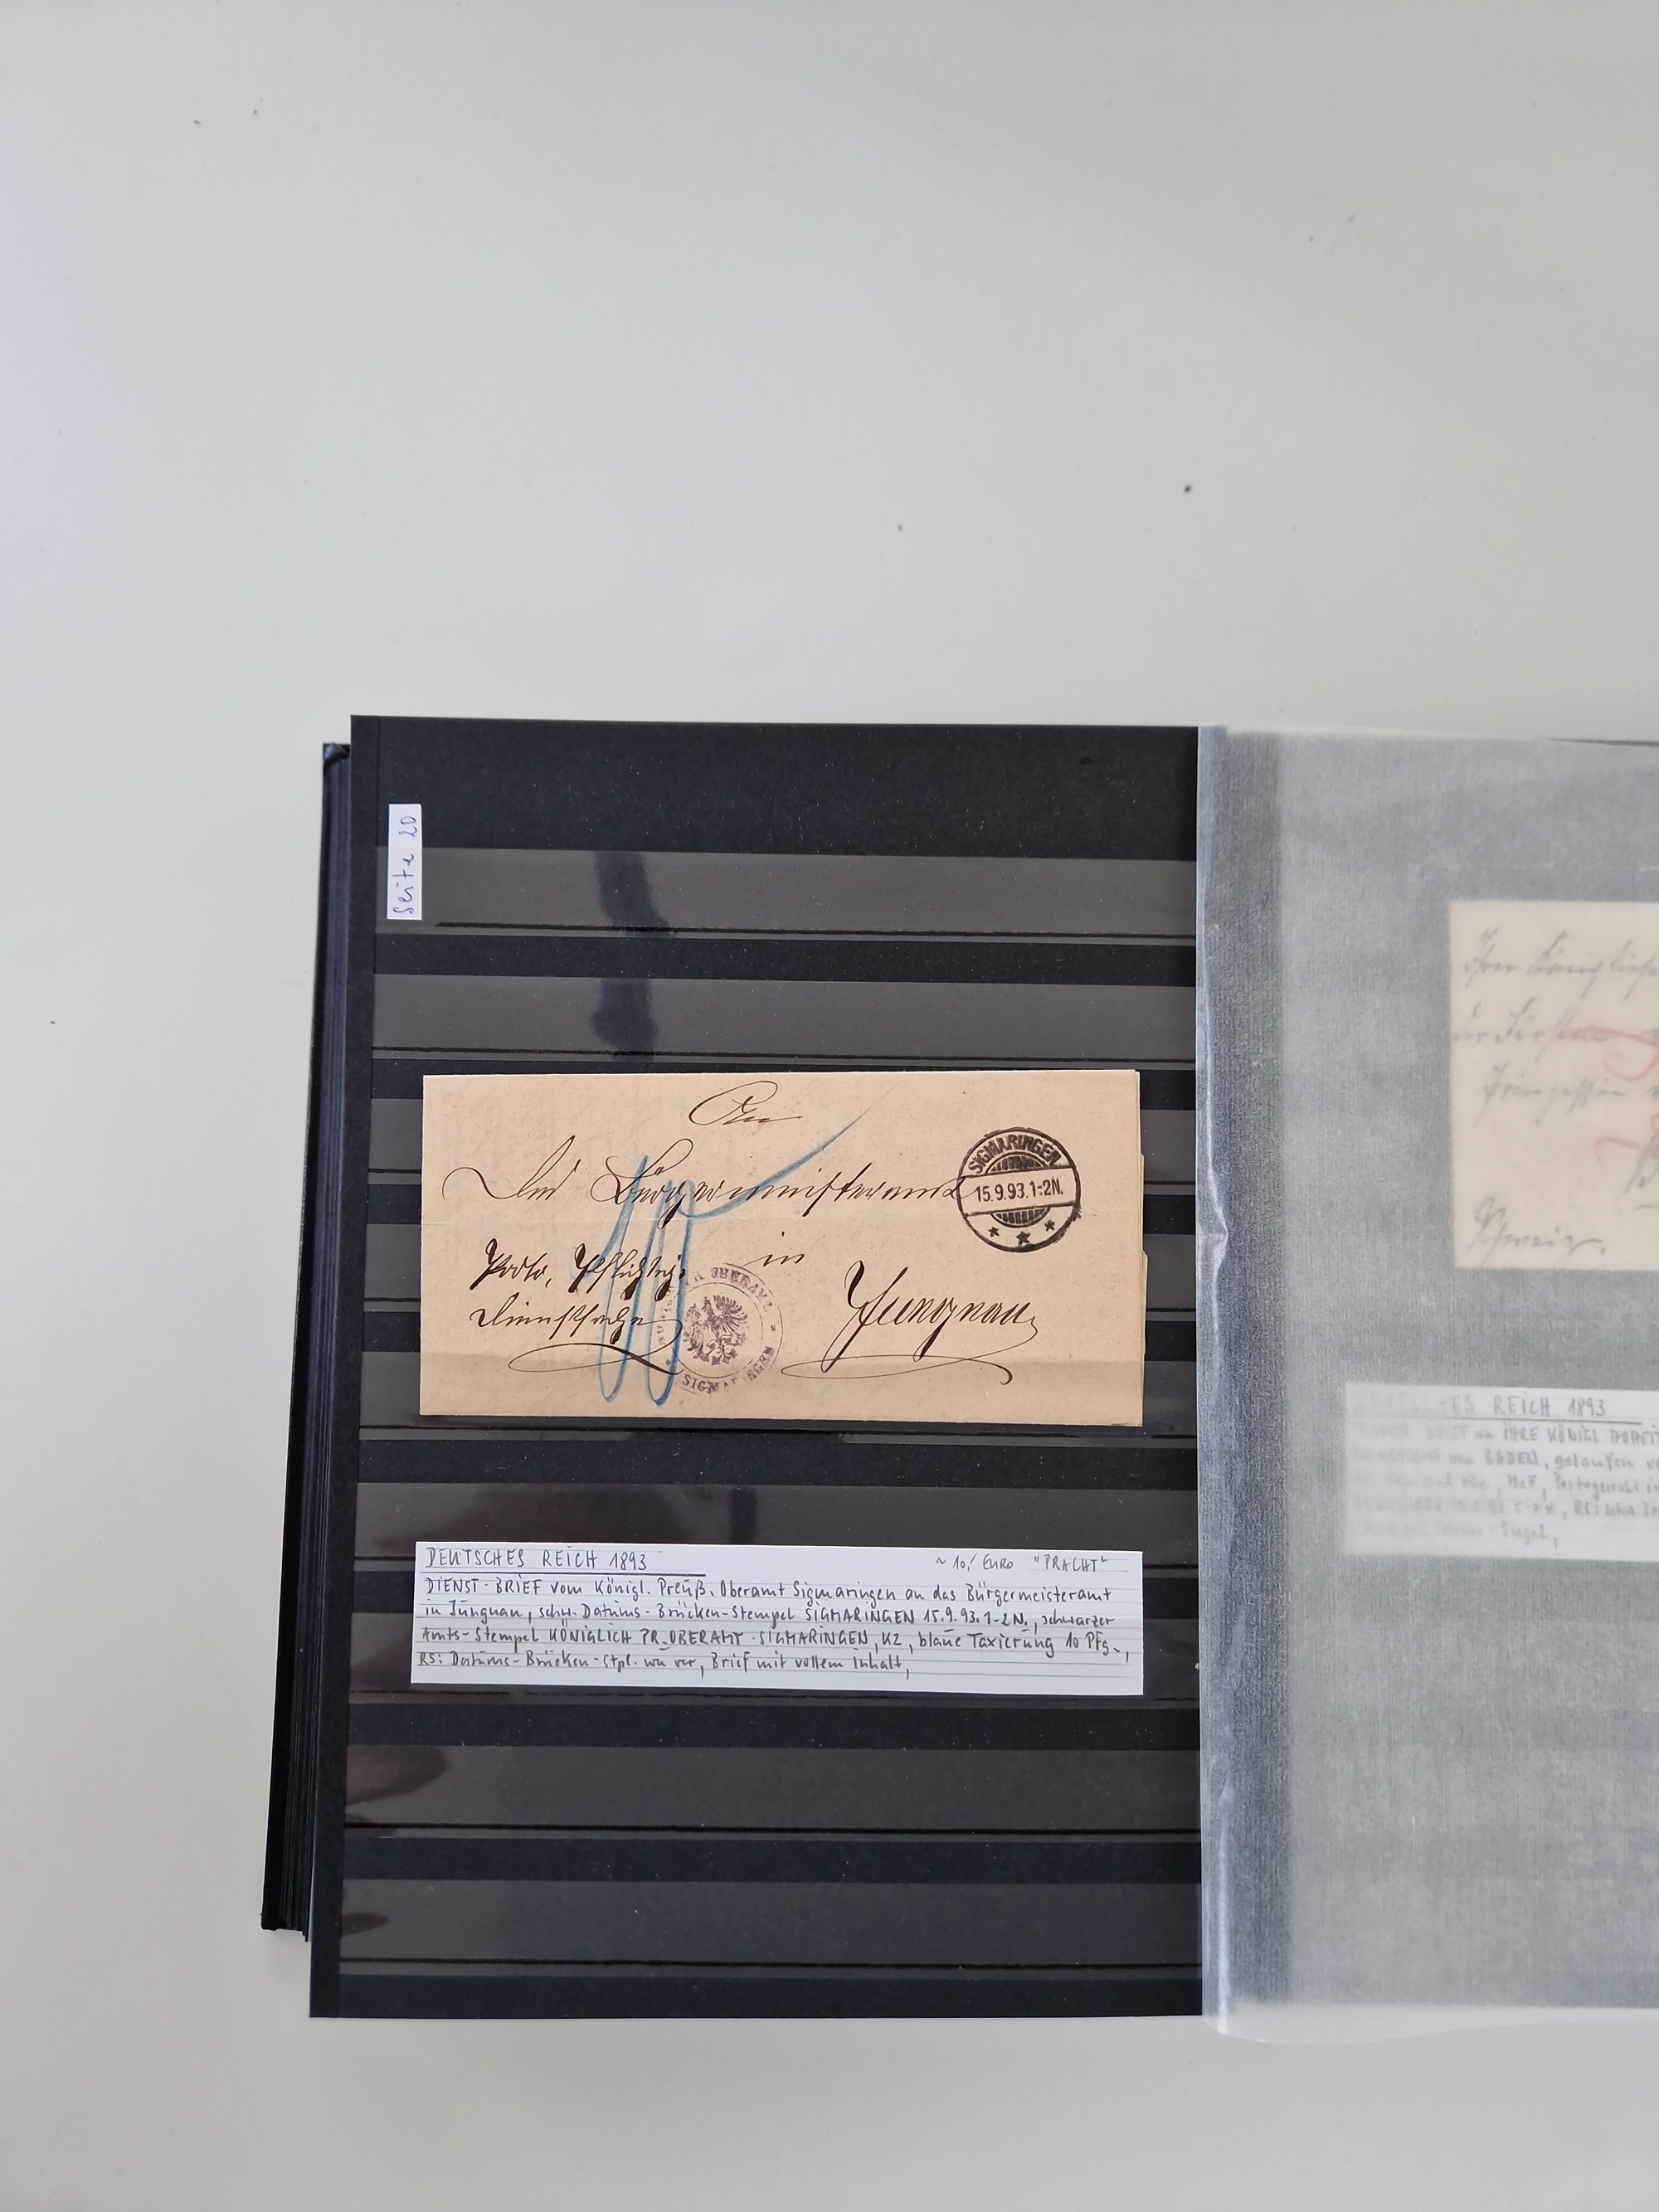 Seite 20
An
das Bürgermeisteramt
SIGMARINGEN
15.9.93.1-2N.
Porto, Pflichtige
Dienstsache
in
Jungnau
OBERAMT
SIGMARINGEN
DEUTSCHES REICH 1893 ~ 10,- EURO "PRACHT"
DIENST-BRIEF vom Königl. Preuß. Oberamt Sigmaringen an das Bürgermeisteramt
in Jungnau, schw. Datums-Brücken-Stempel SIGMARINGEN 15.9.93.1-2N., schwarzer
Amts-Stempel KÖNIGLICH PR. OBERAMT · SIGMARINGEN, K2, blaue Taxierung 10 Pfg.,
RS: Datums-Brücken-Stpl. wie vor, Brief mit vollem Inhalt,
Ihre Königliche
der Fürstin
Prinzessin
Schweiz.
REICH 1893
an IHRE KÖNIGL. HOHEIT
von BADEN, gelaufen
MeF, Portogerecht
Siegel,